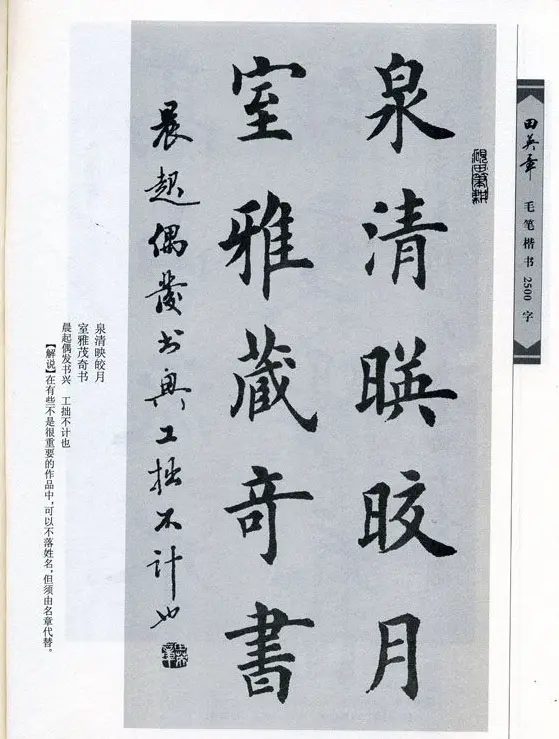 田英章 毛笔楷书2500字
硯田筆耕
泉清暎皎月
室雅藏奇書
晨起偶發书興工拙不計也
泉清映皎月
室雅茂奇书
晨起偶发书兴 工拙不计也
【解说】在有些不是很重要的作品中，可以不落姓名，但须由名章代替。